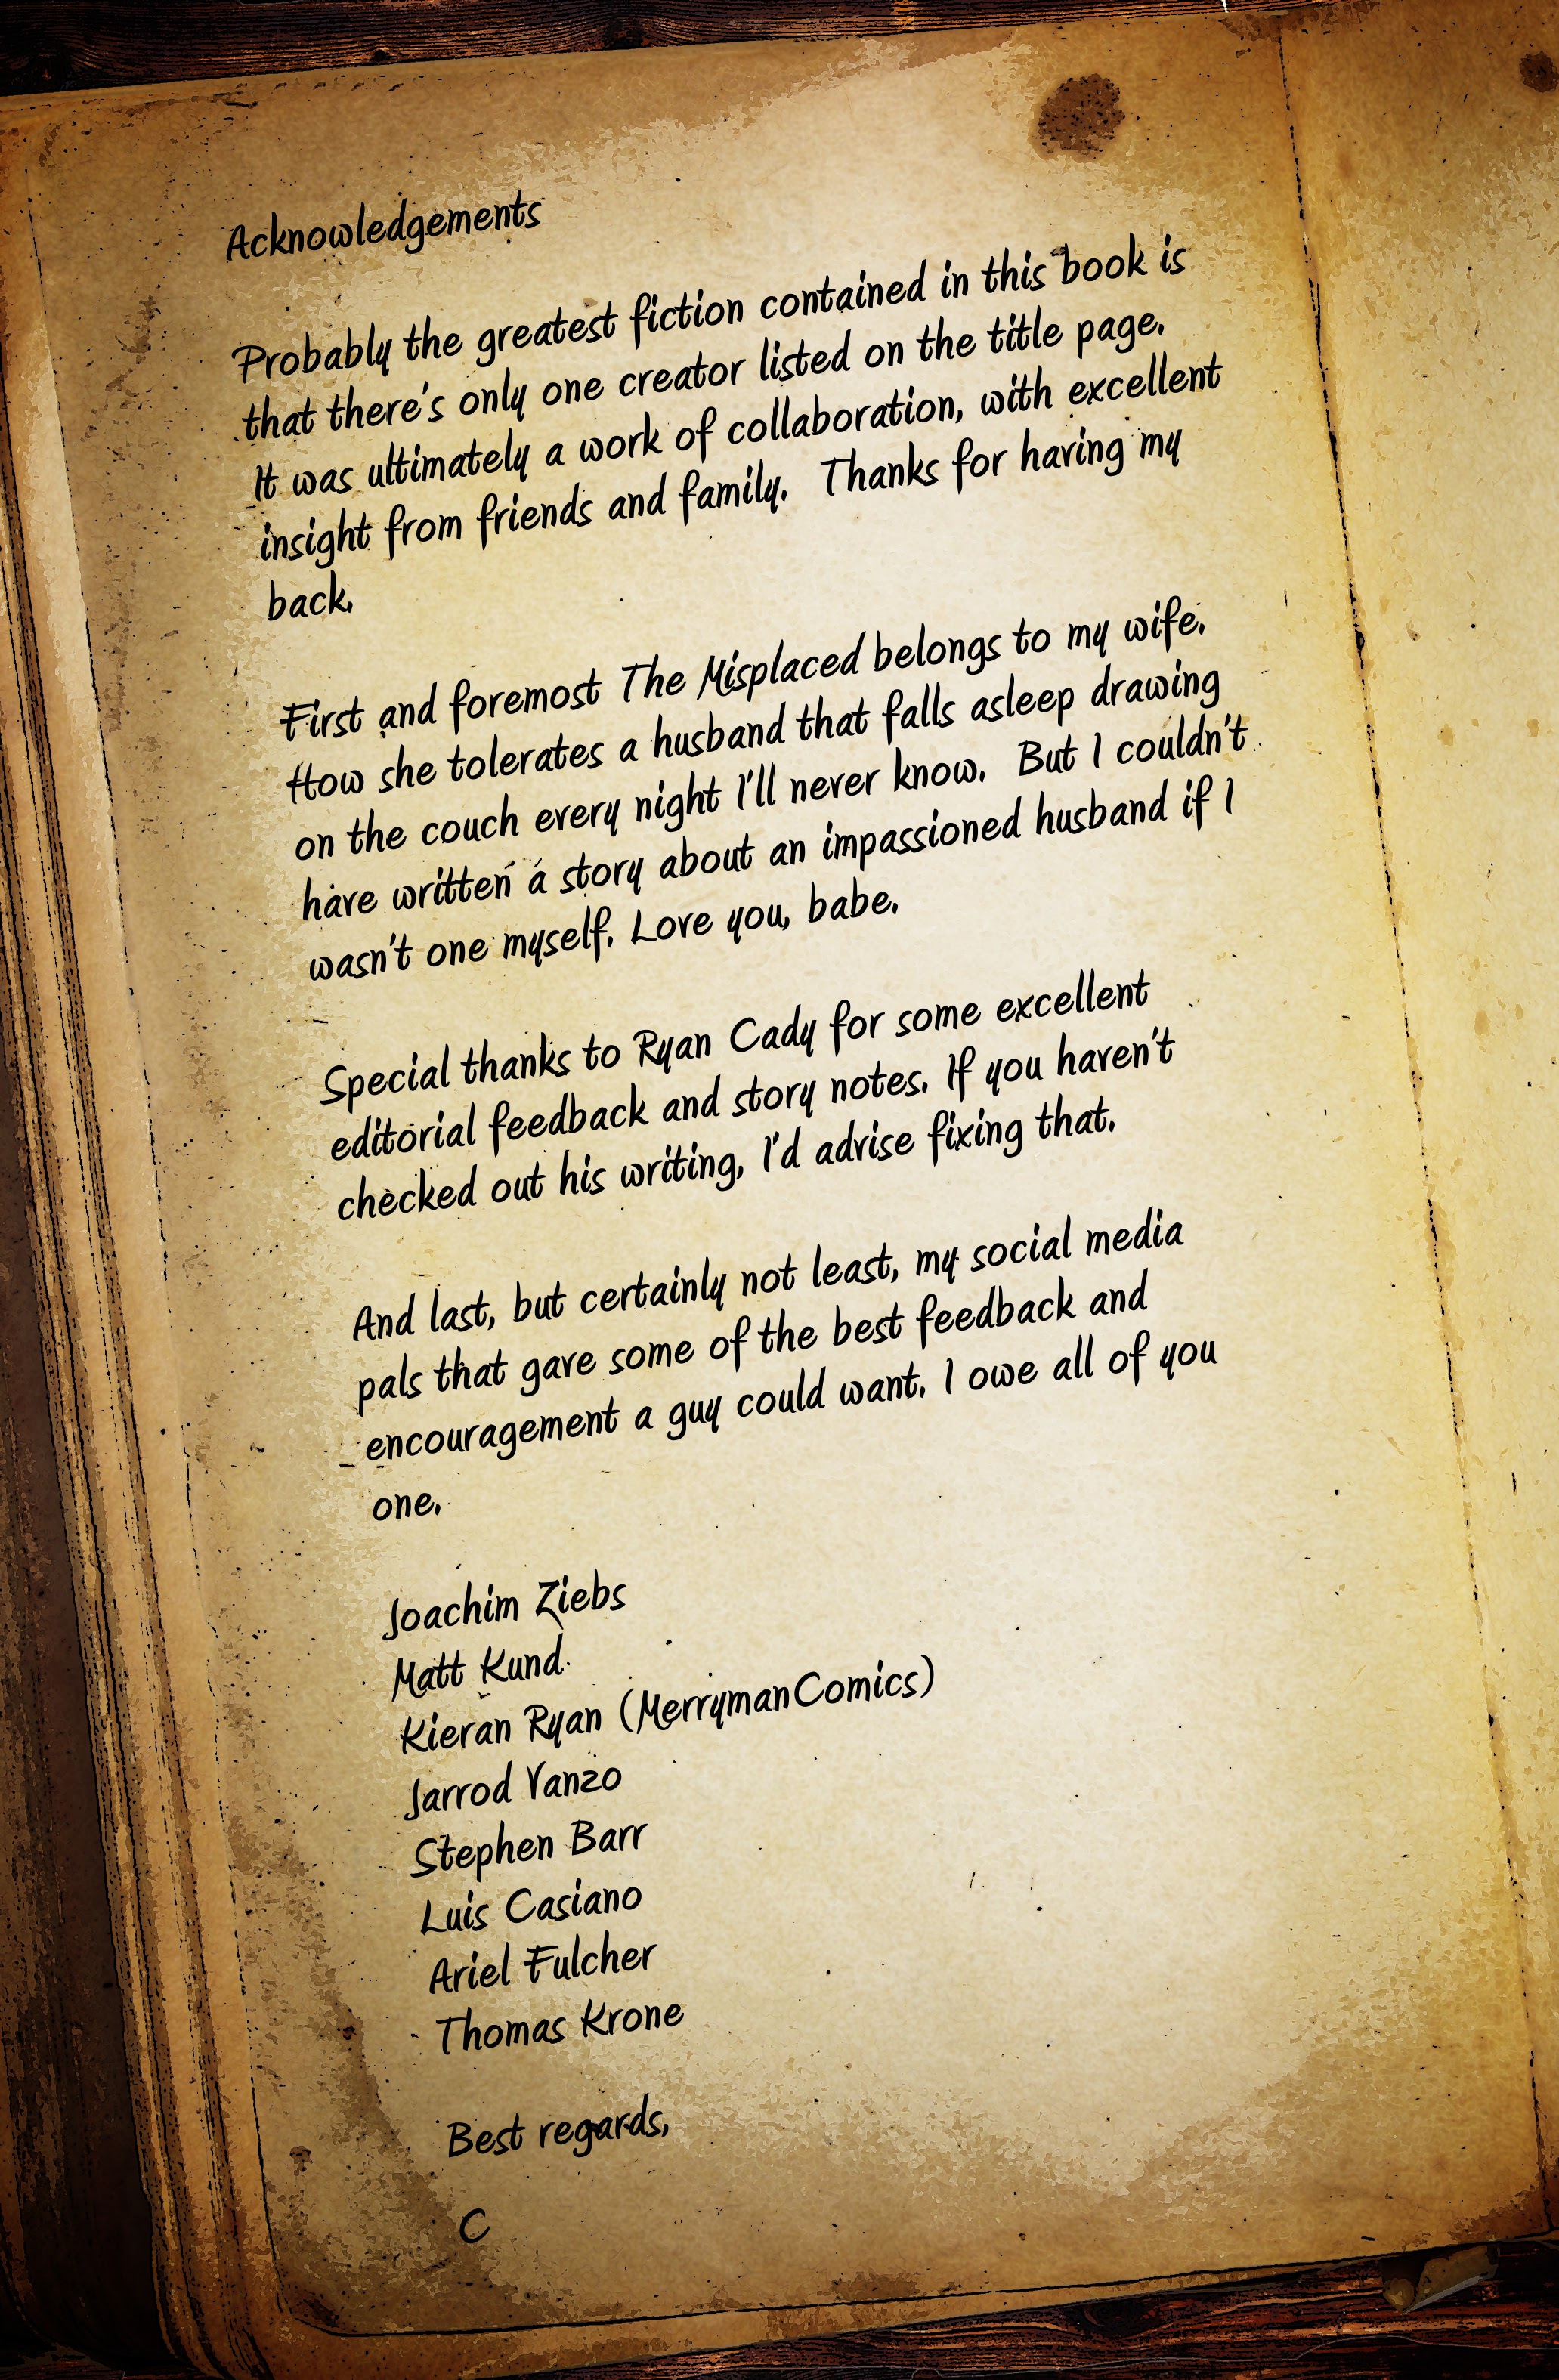 Acknowledgements
Probably the greatest fiction contained in this book is
that there's only one creator listed on the title page.
It was ultimately a work of collaboration, with excellent
insight from friends and family.  Thanks for having my
back.
First and foremost The Misplaced belongs to my wife.
How she tolerates a husband that falls asleep drawing
on the couch every night I'll never know.  But I couldn't
have written a story about an impassioned husband if I
wasn't one myself. Love you, babe.
Special thanks to Ryan Cady for some excellent
editorial feedback and story notes. If you haven't
checked out his writing, I'd advise fixing that.
And last, but certainly not least, my social media
pals that gave some of the best feedback and
encouragement a guy could want. I owe all of you
one.
Joachim Ziebs
Matt Kund
Kieran Ryan (MerrymanComics)
Jarrod Vanzo
Stephen Barr
Luis Casiano
Ariel Fulcher
Thomas Krone
Best regards,
C